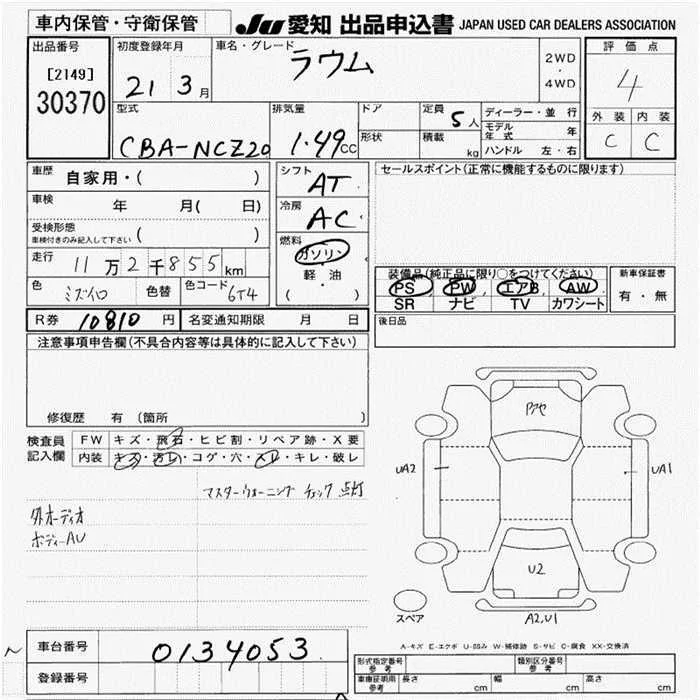 車内保管・守衛保管 JU 愛知 出品申込書 JAPAN USED CAR DEALERS ASSOCIATION
出品番号 初度登録年月 車名・グレード 評価点
[2149] 21 3月 ラウム 2WD・4WD 4
30370
型式 排気量 ドア 定員 5人 ディーラー・並行 外装 内装
CBA-NCZ20 1.49CC 形状 積載 kg モデル年式 年 C C
ハンドル 左・右
車歴 自家用・( ) シフト AT セールスポイント(正常に機能するものに限ります)
車検 年 月( 日) 冷房 AC
受検形態 ( )
車検付きのみ記入して下さい
燃料 ガソリン・軽・油 ( )
走行 11万2千855km
色 ミズイロ 色替 色コード 6T4
装備品(純正品に限り○をつけてください) 新車保証書
PS PW エアB AW 有・無
SR ナビ TV カワシート
R券 10810円 名変通知期限 月 日 後日品
注意事項申告欄(不具合内容等は具体的に記入して下さい)
修復歴 有 (箇所 )
検査員記入欄 FW キズ・飛石・ヒビ割・リペア跡・X要
内装 キズ・汚レ・コゲ・穴・スレ・キレ・破レ
マスターウォーニング チェック 点灯
外オーディオ
ボディーAU
UA2 UA1
U2
スペア A2,U1
A-キズ E-エクボ U-凹み W-補修跡 S-サビ C-腐食 XX-交換済
車台番号 0134053
登録番号
形式指定番号 参考 類別区分番号 参考
車庫証明用 参考 長さ cm 幅 cm 高さ cm